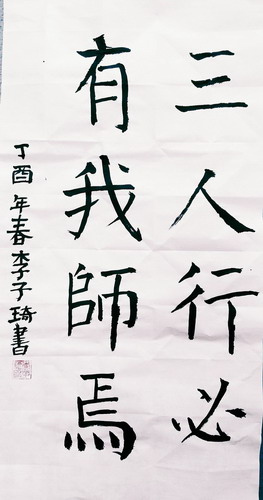 三人行必
有我師焉
丁酉年春李子琦書